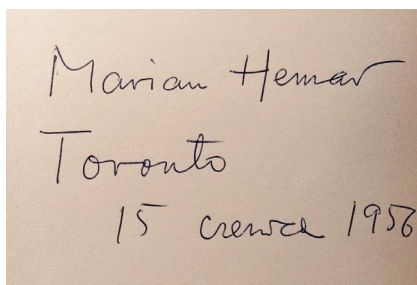 Marian Hemar
Toronto
15 czerwca 1956